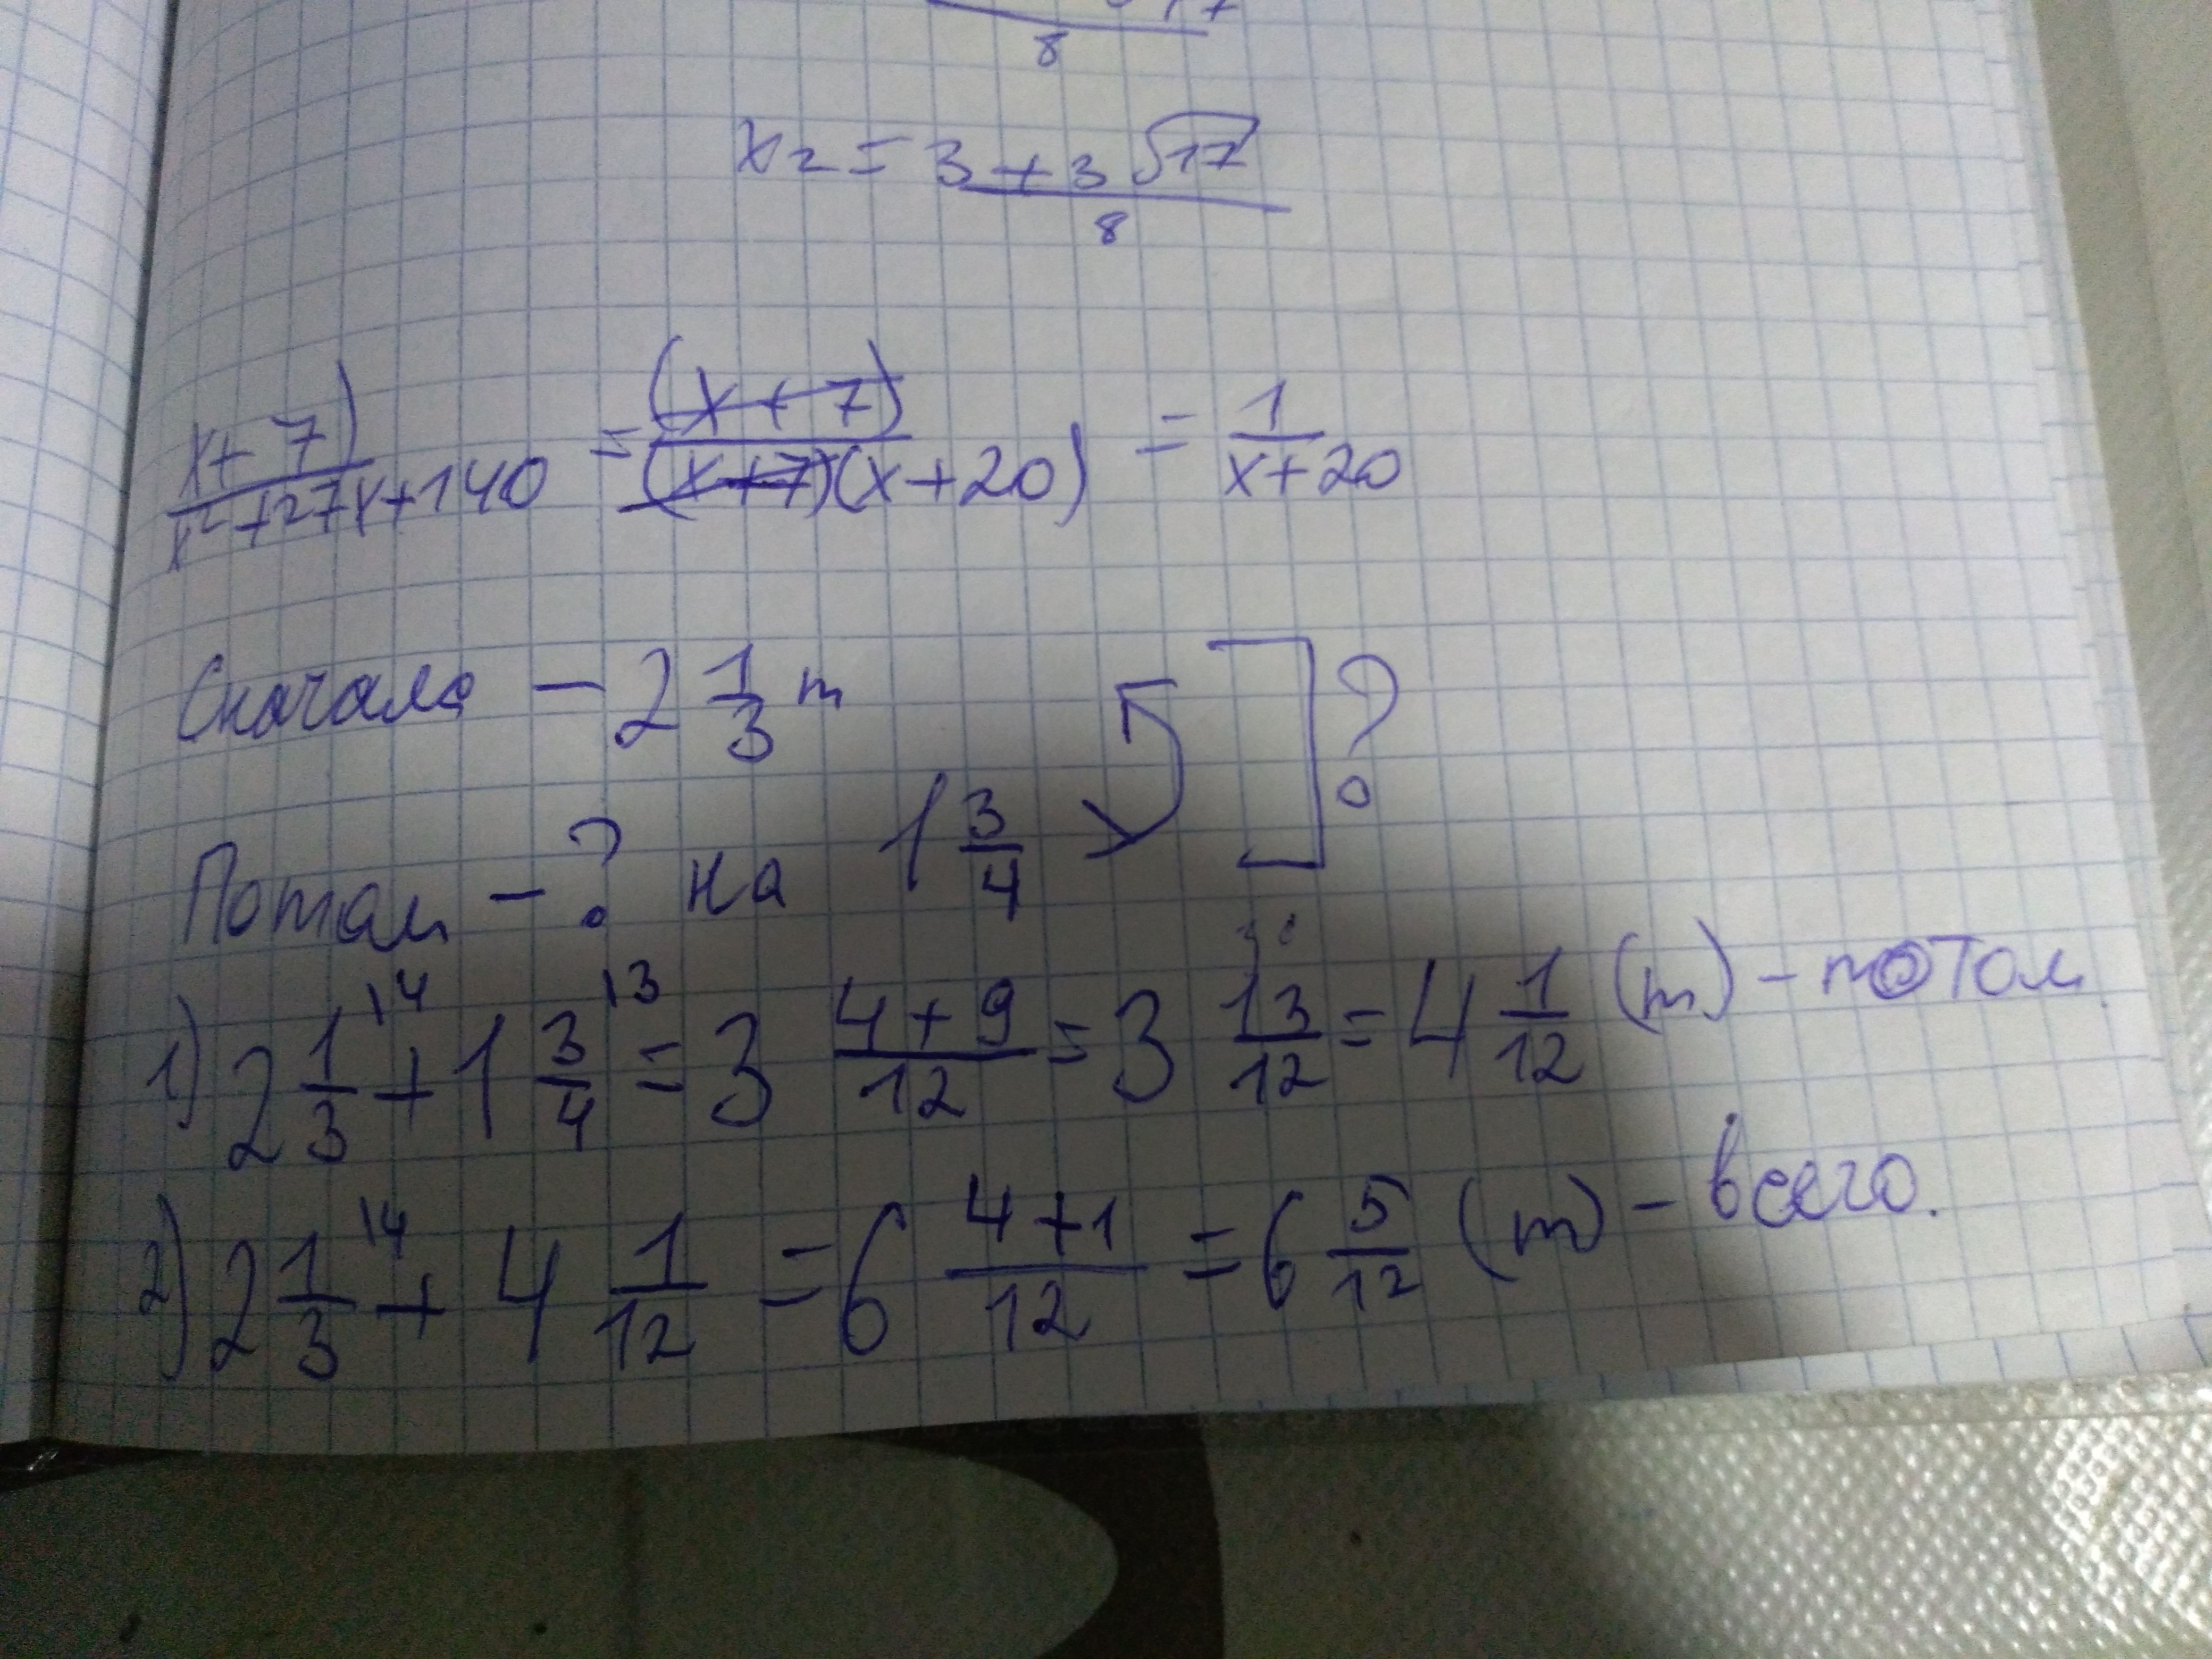 8
x₂ = (3 + 3√17)/8
(x+7)/(x²+27x+140) = (x+7)/((x+7)(x+20)) = 1/(x+20)
Сначала – 2 1/3 т ]?
Потом – ? на 1 3/4
1) 2 1/3 \4 + 1 3/4 \3 = 3 (4+9)/12 = 3 13/12 = 4 1/12 (т) – потом
2) 2 1/3 \4 + 4 1/12 = 6 (4+1)/12 = 6 5/12 (т) – всего.